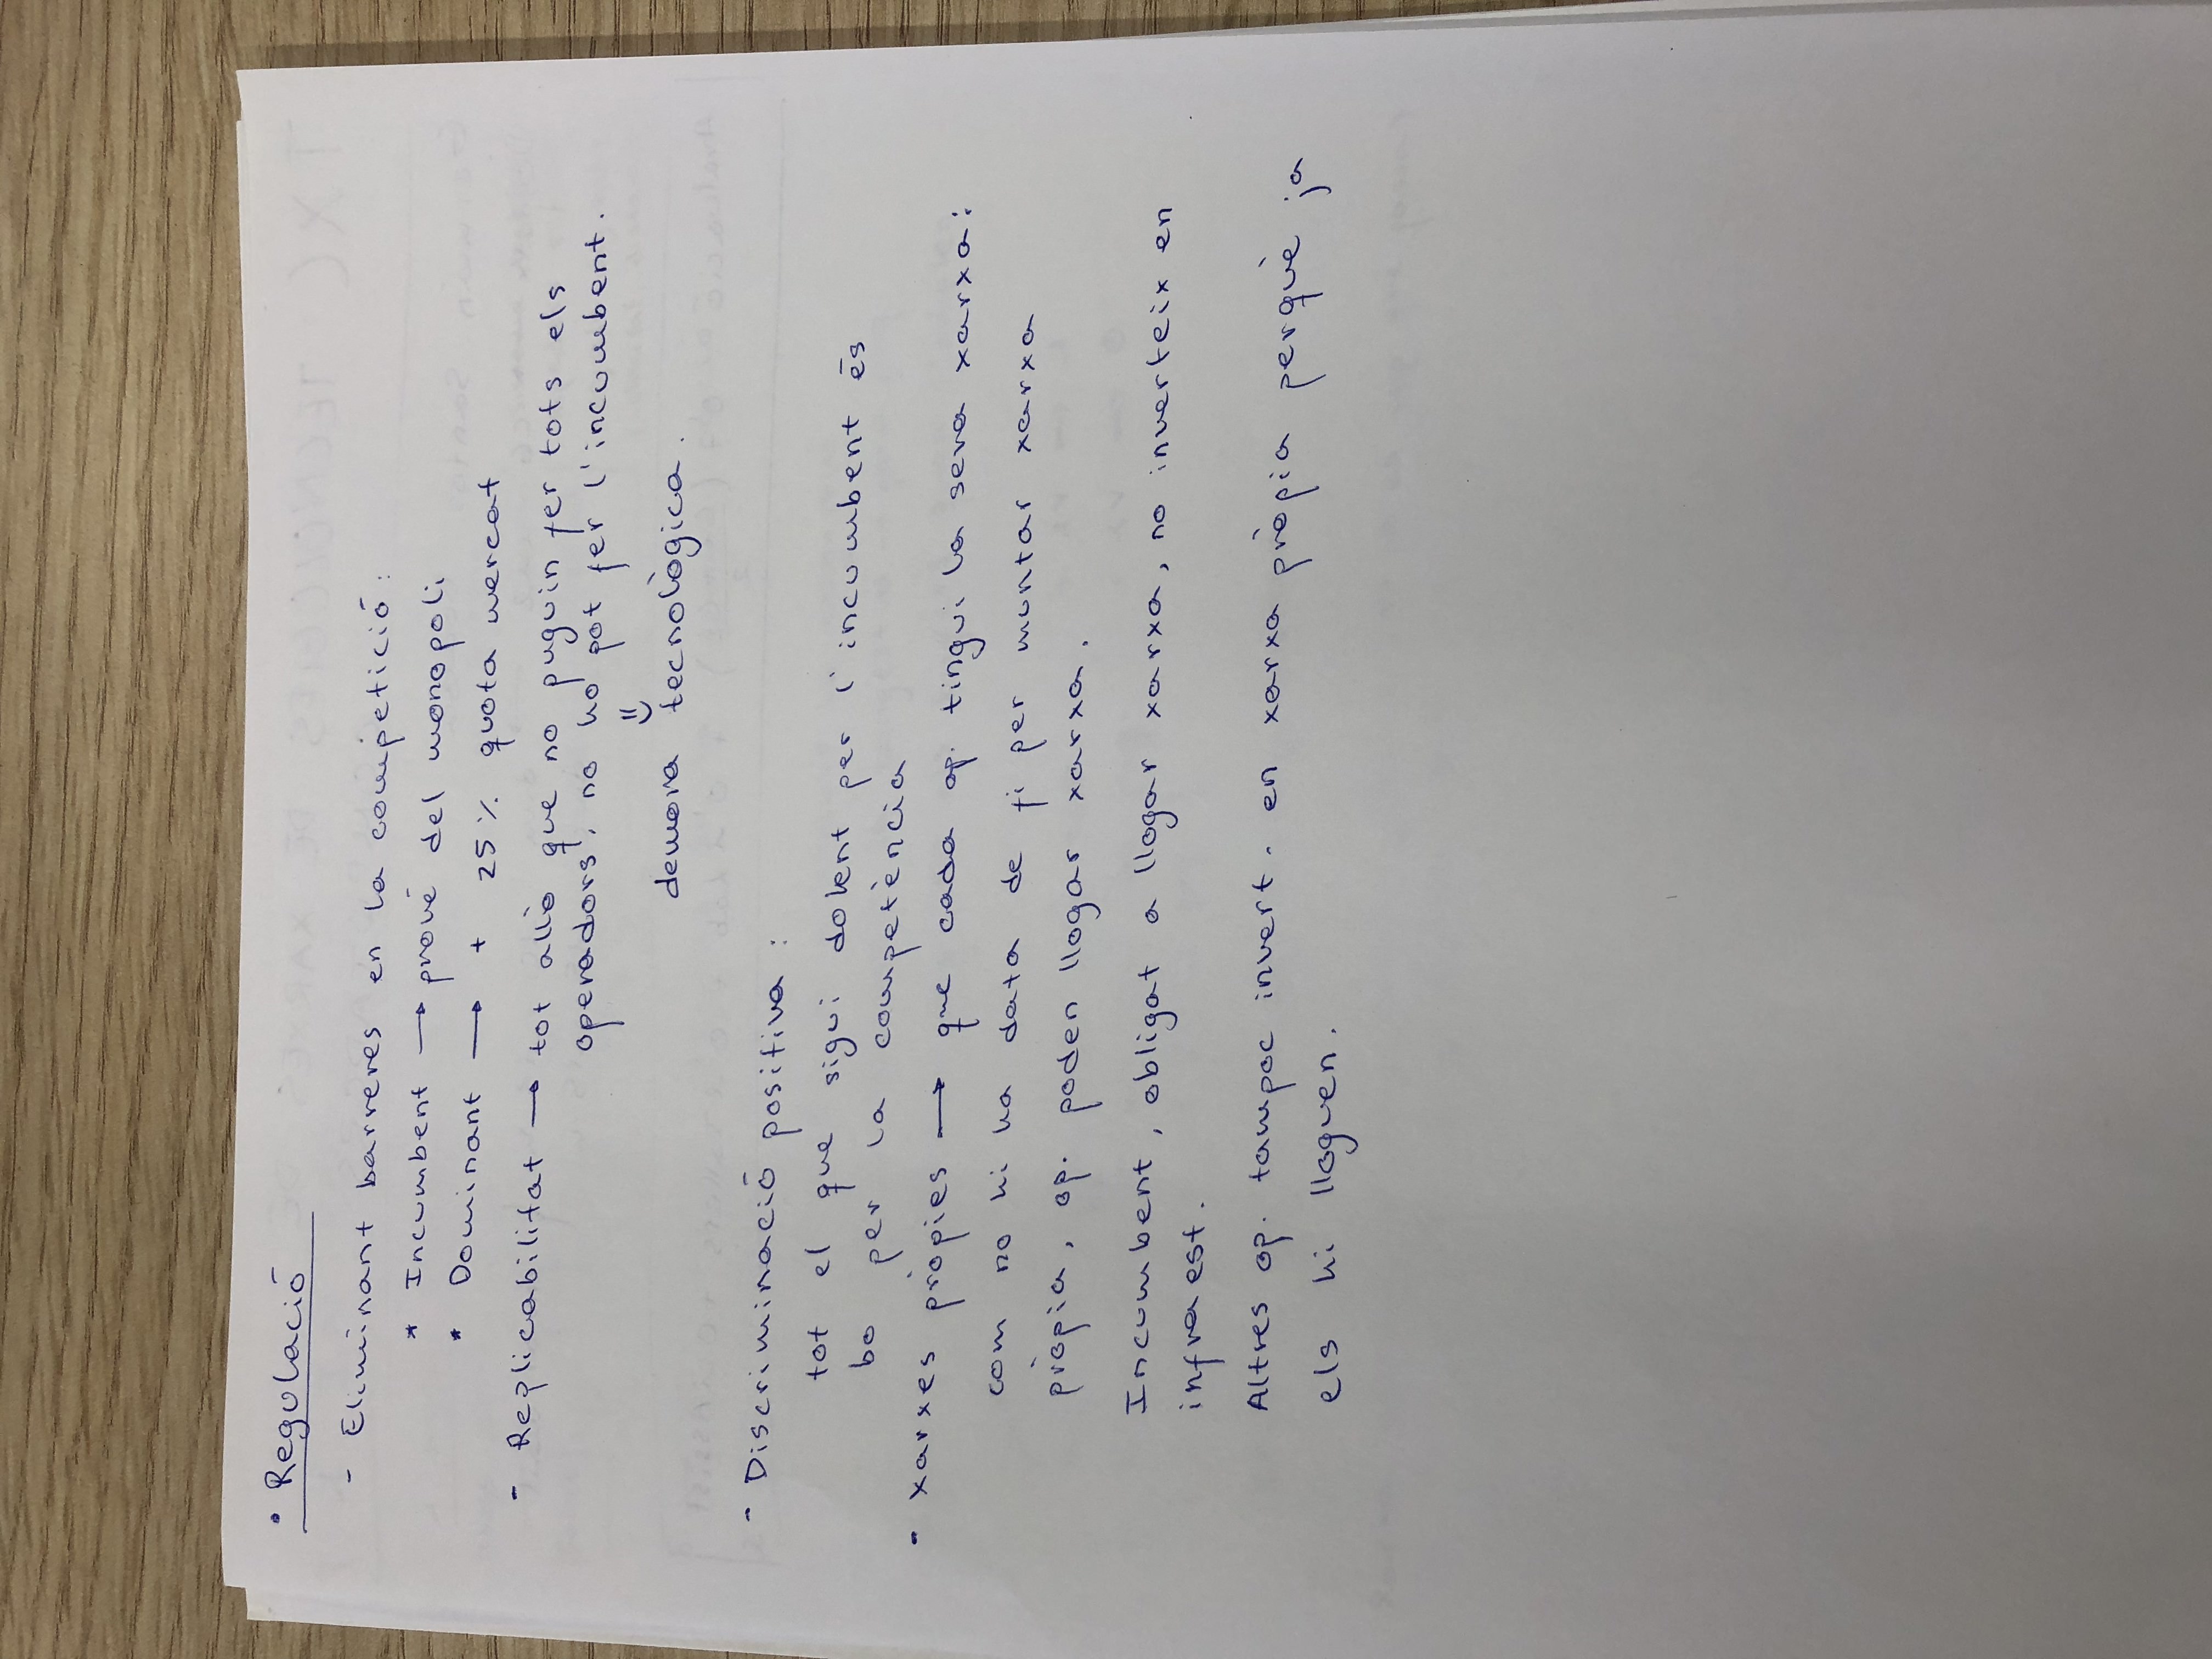 • Regulació
- Eliminant barreres en la competició:
* Incumbent → prové del monopoli
* Dominant → + 25% quota mercat
- Replicabilitat → tot allò que no puguin fer tots els
operadors, no ho pot fer l'incumbent.
⇓
demora tecnològica.
- Discriminació positiva:
tot el que sigui dolent per l'incumbent és
bo per la competència
- xarxes pròpies → que cada op. tingui la seva xarxa:
com no hi ha data de fi per muntar xarxa
pròpia, op. poden llogar xarxa.
Incumbent, obligat a llogar xarxa, no inverteix en
infraest.
Altres op. tampoc invert. en xarxa pròpia perquè ja
els hi lloguen.